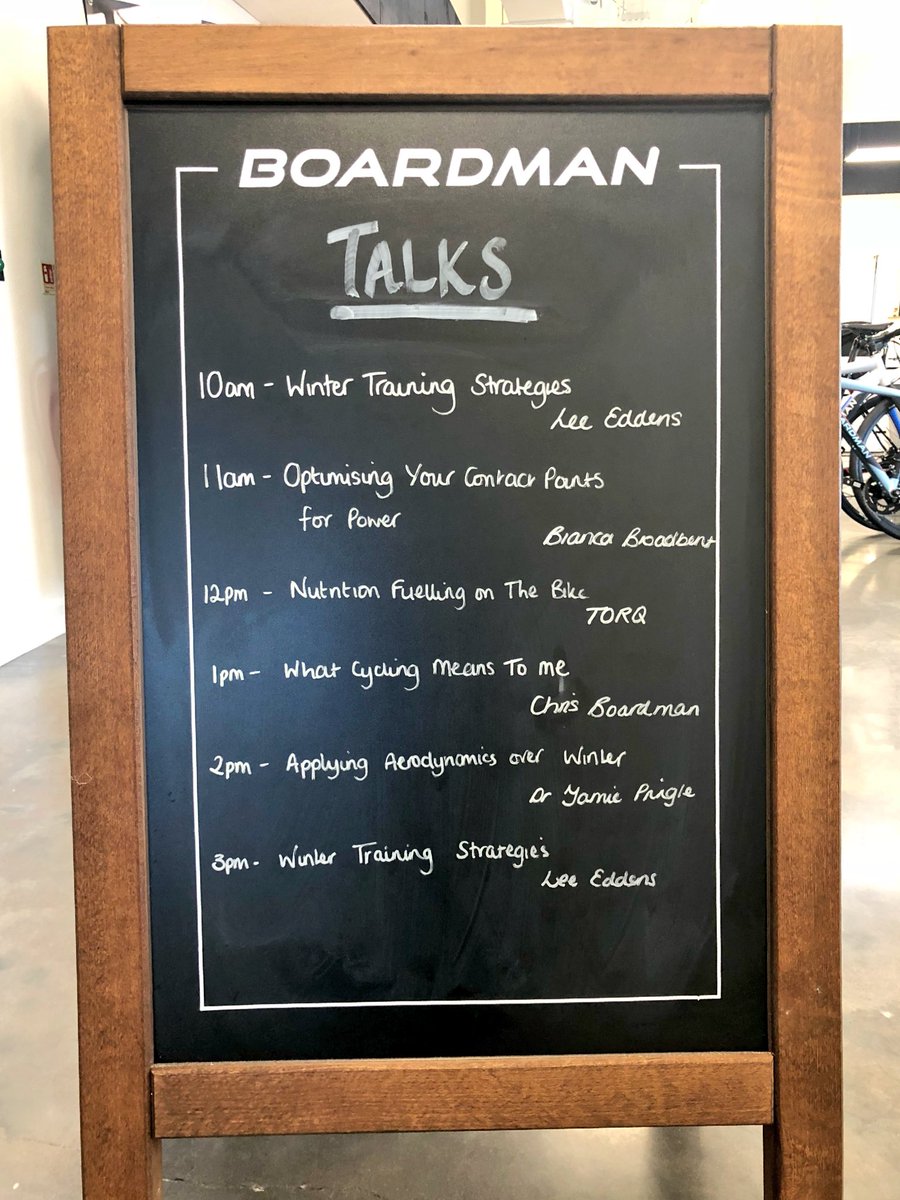 BOARDMAN
TALKS
10am - Winter Training Strategies
Lee Eddens
11am - Optimising Your Contact Points
for Power
Bianca Broadbent
12pm - Nutrition Fuelling on The Bike
TORQ
1pm - What Cycling Means To me
Chris Boardman
2pm - Applying Aerodynamics over Winter
Dr Jamie Pringle
3pm - Winter Training Strategies
Lee Eddens
BOARDMAN